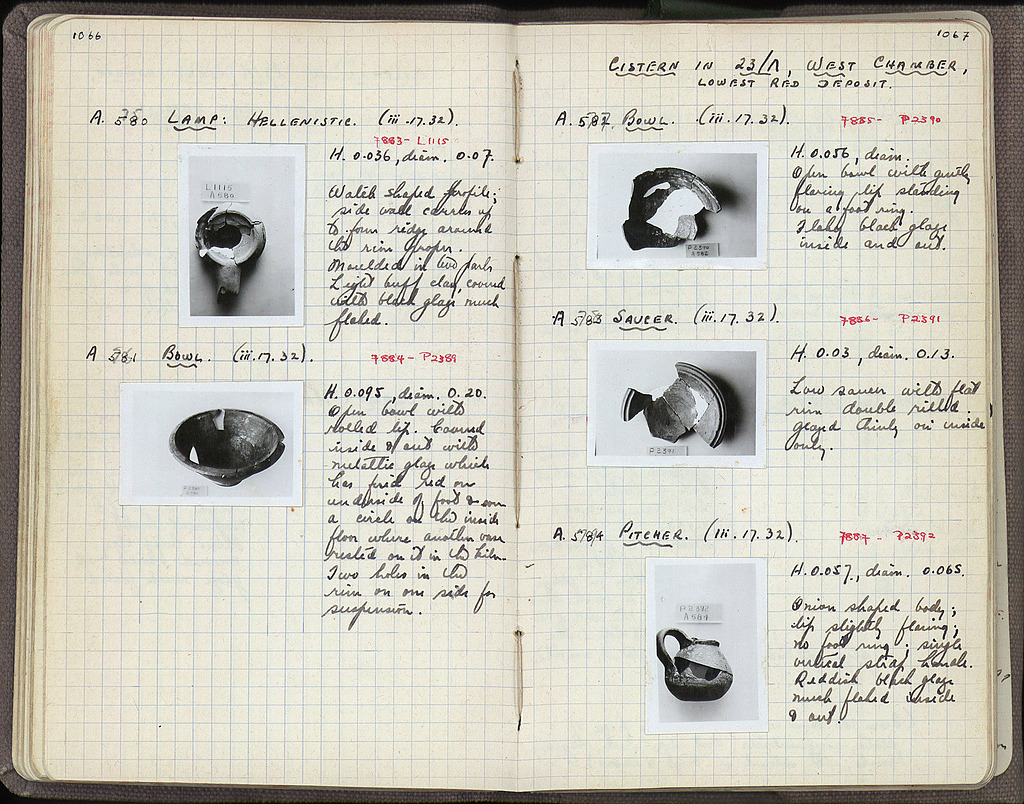 1066
A. 580 LAMP: HELLENISTIC. (iii.17.32).
7883 - L1115
H. 0.036, diam. 0.07.
Watch shaped profile;
side wall carries up
to form ridge around
the rim proper.
Moulded in two parts
Light buff clay, covered
with black glaze much
flaked.
L1115
A 580
A 581 BOWL. (iii.17.32).
7884 - P2389
H. 0.095, diam. 0.20.
Open bowl with
rolled lip. Covered
inside & out with
metallic glaze which
has fired red on
underside of foot & on
a circle on the inside
floor where another vase
rested on it in the kiln.
Two holes in the
rim on one side for
suspension.
1067
CISTERN IN 23/Λ, WEST CHAMBER,
LOWEST RED DEPOSIT.
A. 582 BOWL. (iii.17.32).
7885 - P2390
H. 0.056, diam.
Open bowl with gently
flaring lip standing
on a foot ring.
Flaky black glaze
inside and out.
P2390
A 582
A 583 SAUCER. (iii.17.32).
7886 - P2391
H. 0.03, diam. 0.13.
Low saucer with flat
rim double rilled.
glazed thinly on inside
only.
P2391
A. 584 PITCHER. (iii.17.32).
7887 - P2392
H. 0.057, diam. 0.065.
Onion shaped body;
lip slightly flaring;
no foot ring; single
vertical strap handle.
Reddish black glaze
much flaked inside
& out.
P2392
A584